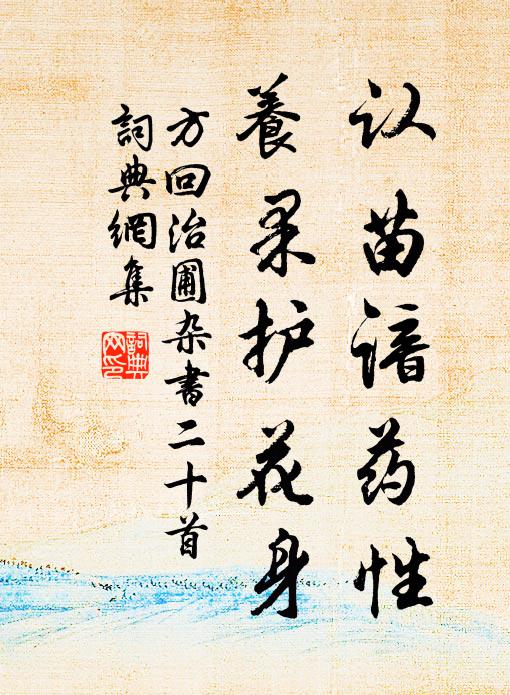 认苗谙药性
養果护花身
方回治圃杂書二十首
詞典網集
詞典網印